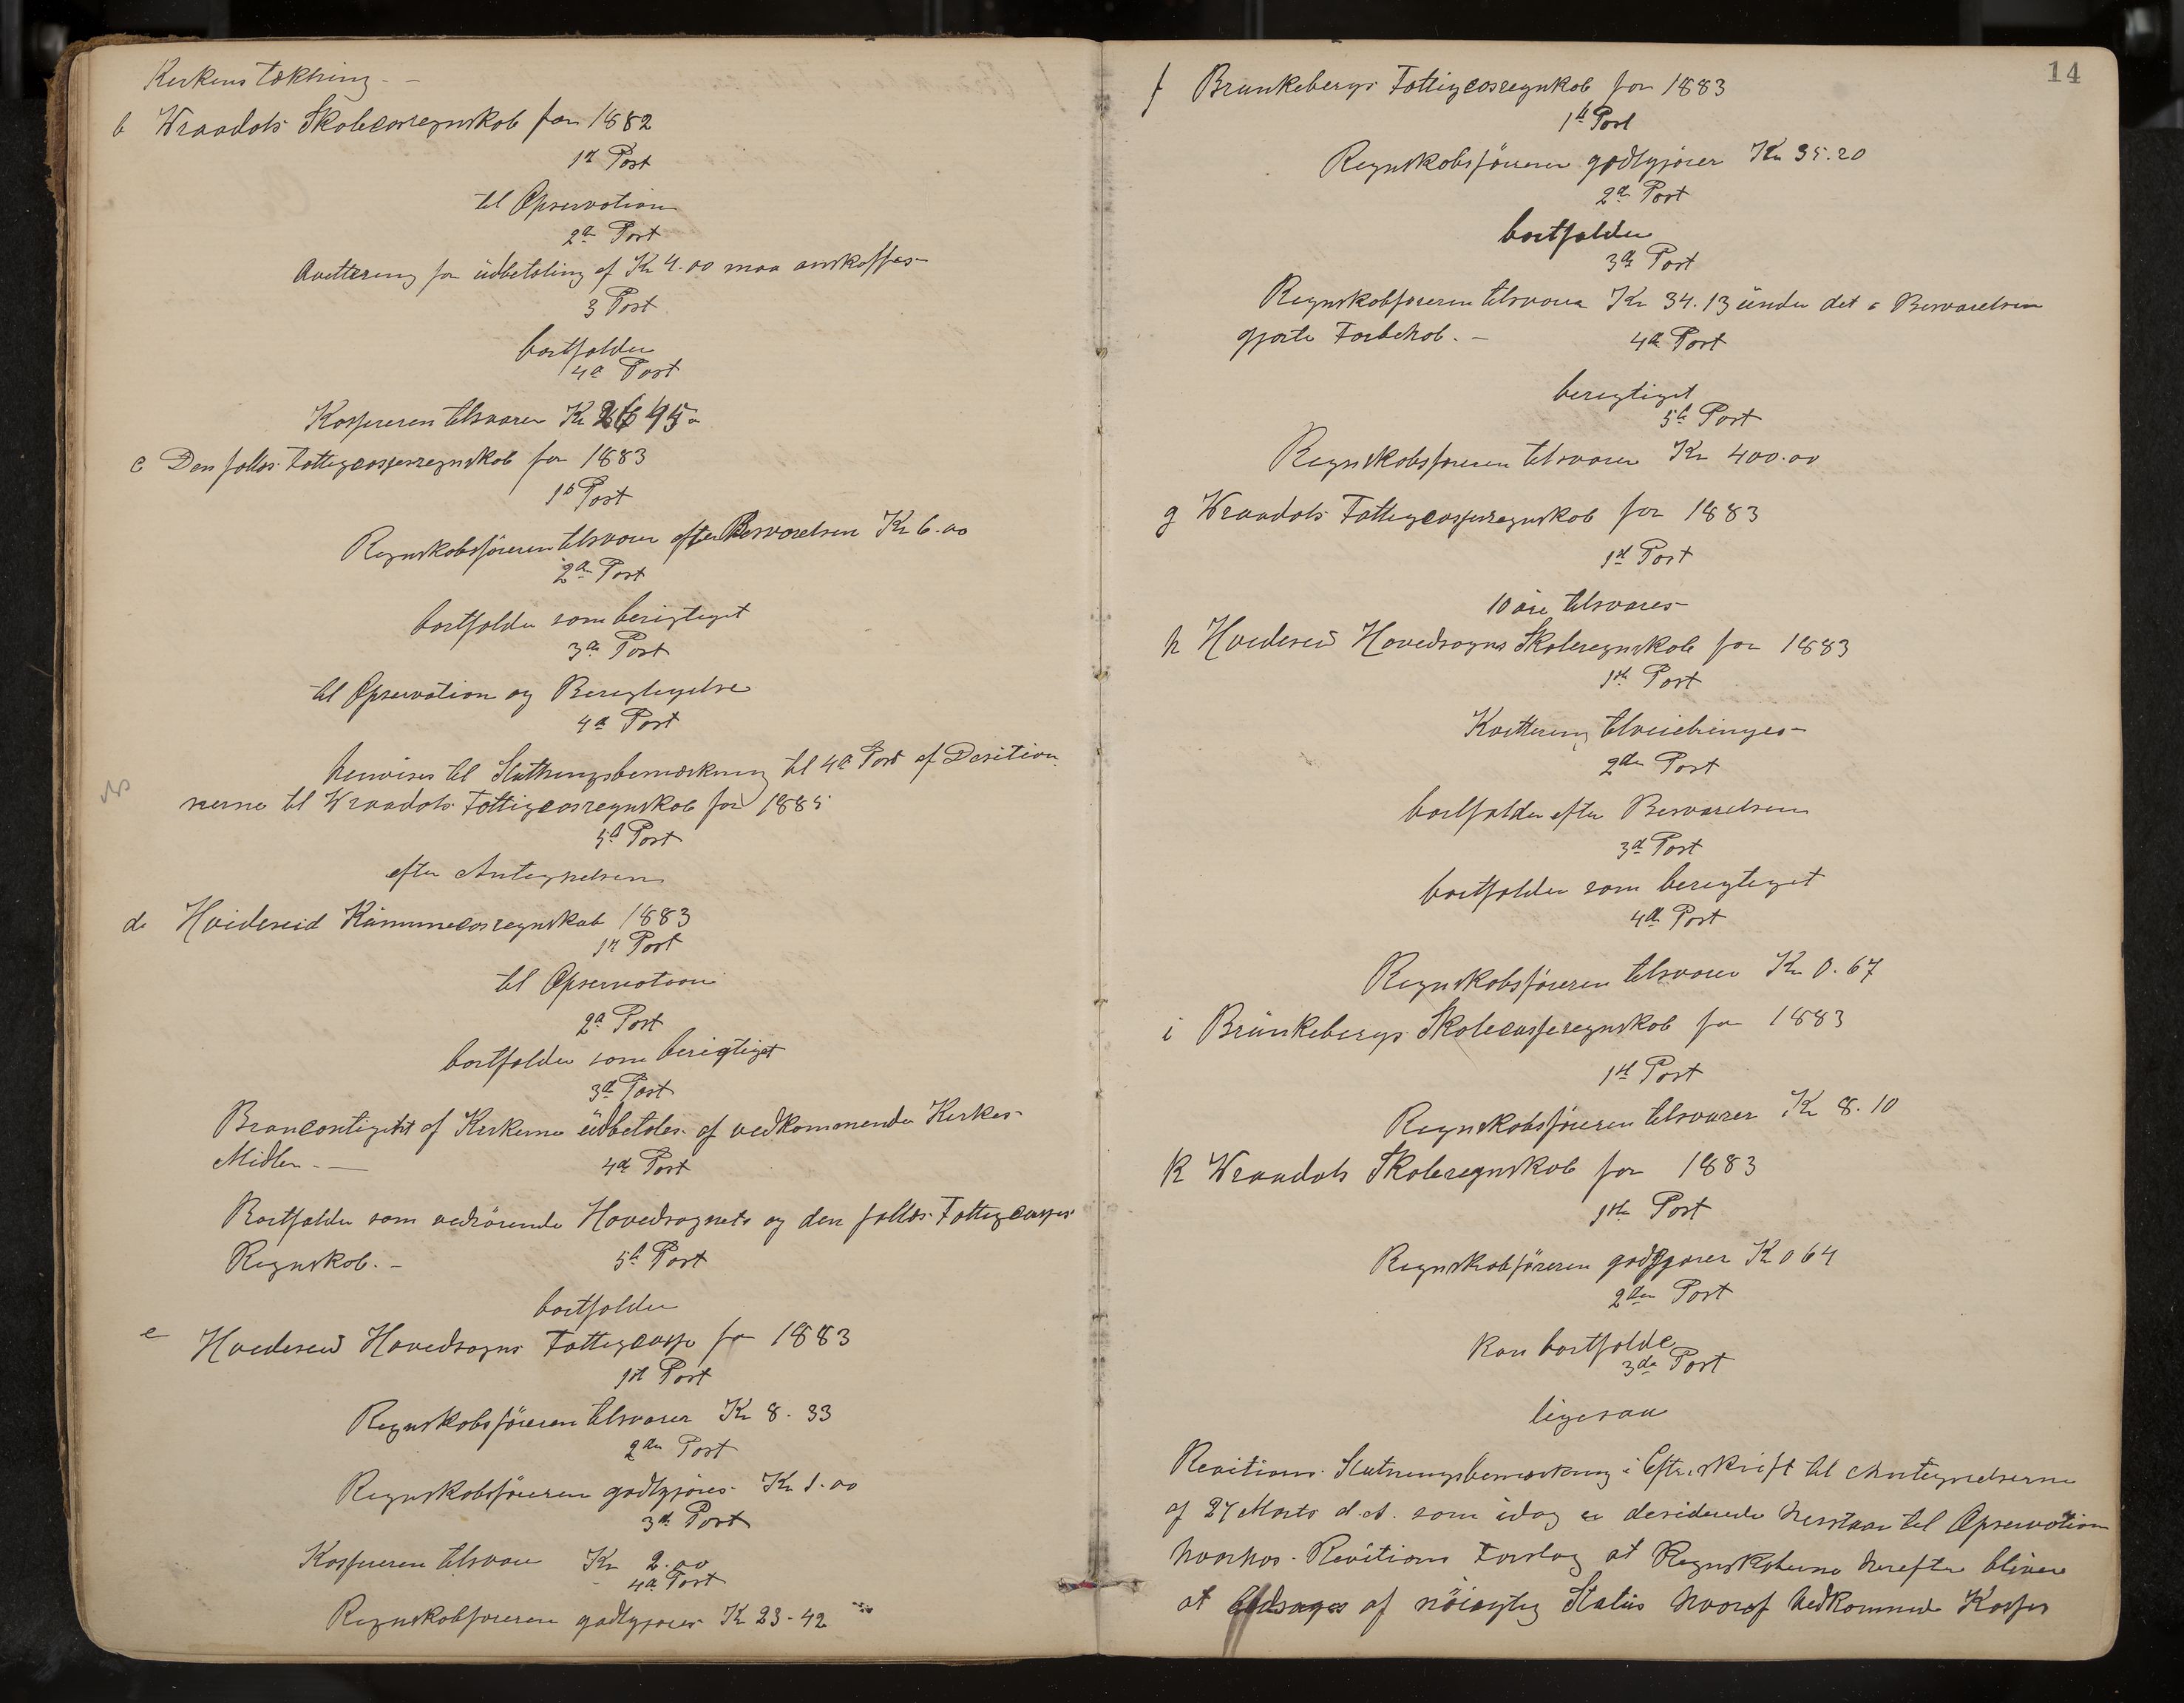 Kirkens tækning. -
b Wraadals Skolecasregnskab for 1882
1st Post
til Opservation
2den Post
Qvittering for üdbetaling af Kr 4.00 maa anskaffes
3 Post
bortfalder
4de Post
Kassereren tilsvarer Kr
c Den fælles Fattigcasseregnskab for 1883
1ste Post
Regnskabsføreren tilsvarer efter Besvarelsen Kr 6.00
2den Post
bortfalder som berigtiget
3de Post
til Opservation og Berigtigelse
4de Post
henvises til Slutningsbemærkning til 4de Post af Desition
nerne til Wraadals Fattigcasregnskab for 1885
5te Post
efter Antegnelsen
d. Hvideseid Kommunecasregnskab 1883
1st Post
til Opservation
2den Post
bortfalder som berigtiget
3de Post
Brancontigent af Kirkerne üdbetales af vedkommende Kirkes
Midler. -
4de Post
Bortfalder som vedrørende Hovedsognets og den fælles Fattigcasses
Regnskab. -
5te Post
bortfalder
e Hvideseid Hovedsogns Fattigcasse for 1883
1st Post
Regnskabsføreren tilsvarer Kr 8.33
2den Post
Regnskabsføreren godtgjøres Kr 1.00
3de Post
Kassereren tilsvarer Kr 2.00
4de Post
Regnskabsføreren godtgjøres Kr 23-42
14
f Brunkebergs Fattigcasregnskab for 1883
1st Post
Regnskabsføreren godtgjører Kr 35.20
2den Post
bortfalder
3de Post
Regnskabsføreren tilsvarer Kr 34.13 ünder det i Besvarelsen
gjorte Forbehold. -
4de Post
berigtiget
5te Post
Regnskabsføreren tilsvarer Kr 400.00
g Wraadals Fattigcasseregnskab for 1883
1st Post
10 øre tilsvares
h Hvideseid Hovedsogns Skoleregnskab for 1883
1ste Post
Kvittering tilveiebringes
2den Post
bortfalder efter Besvarelsen
3de Post
bortfalder som berigtiget
4de Post
Regnskabsføreren tilsvarer Kr 0.67
i Brünkebergs Skolecasseregnskab for 1883
1st Post
Regnskabsføreren tilsvarer Kr 8.10
k Wraadals Skoleregnskab for 1883
1ste Post
Regnskabsføreren godtgjører Kr 0 64
2den Post
kan bortfalde
3de Post
ligesaa
Revitions Slutningsbemærkning i Efterskrift til Antegnelserne
af 27 Marts d.A. som idag er desiderede henstaar til Opservation
hvorhos Revitions Forslag at Regnskaberne herefter bliver
at ledsages af nöiagtig Status hvoraf Vedkommende Kasses